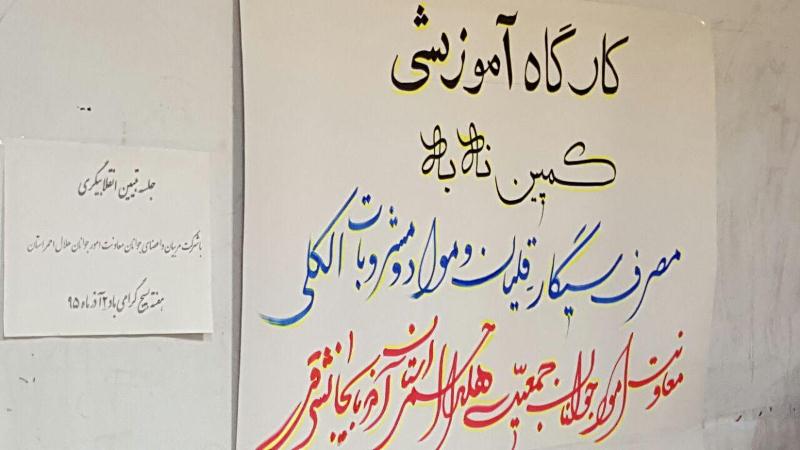 کارگاه آموزشی
کمپین نه به
مصرف سیگار، قلیان و مواد و مشروبات الکلی
معاونت امور جوانان جمعیت هلال احمر استان آذربایجانشرقی
جلسه تبیین انقلابیگری
با شرکت مربیان و اعضای جوانان معاونت امور جوانان هلال احمر استان
هفته بسیج گرامی باد ۲ آذر ماه ۹۵